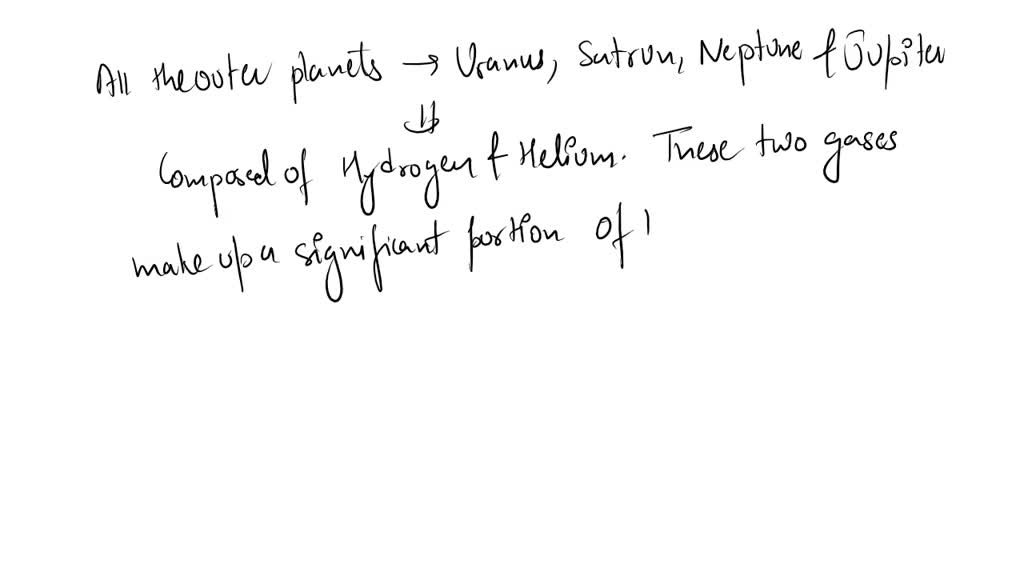 All the outer planets → Uranus, Satrun, Neptune & Jupiter
⇓
Composed of Hydrogen & Helium. These two gases
make up a significant portion of